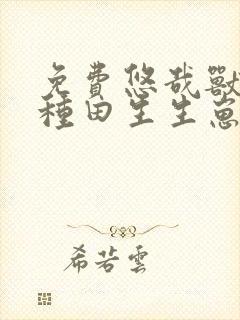 免費悠哉獸
種田生生崽
希若雲